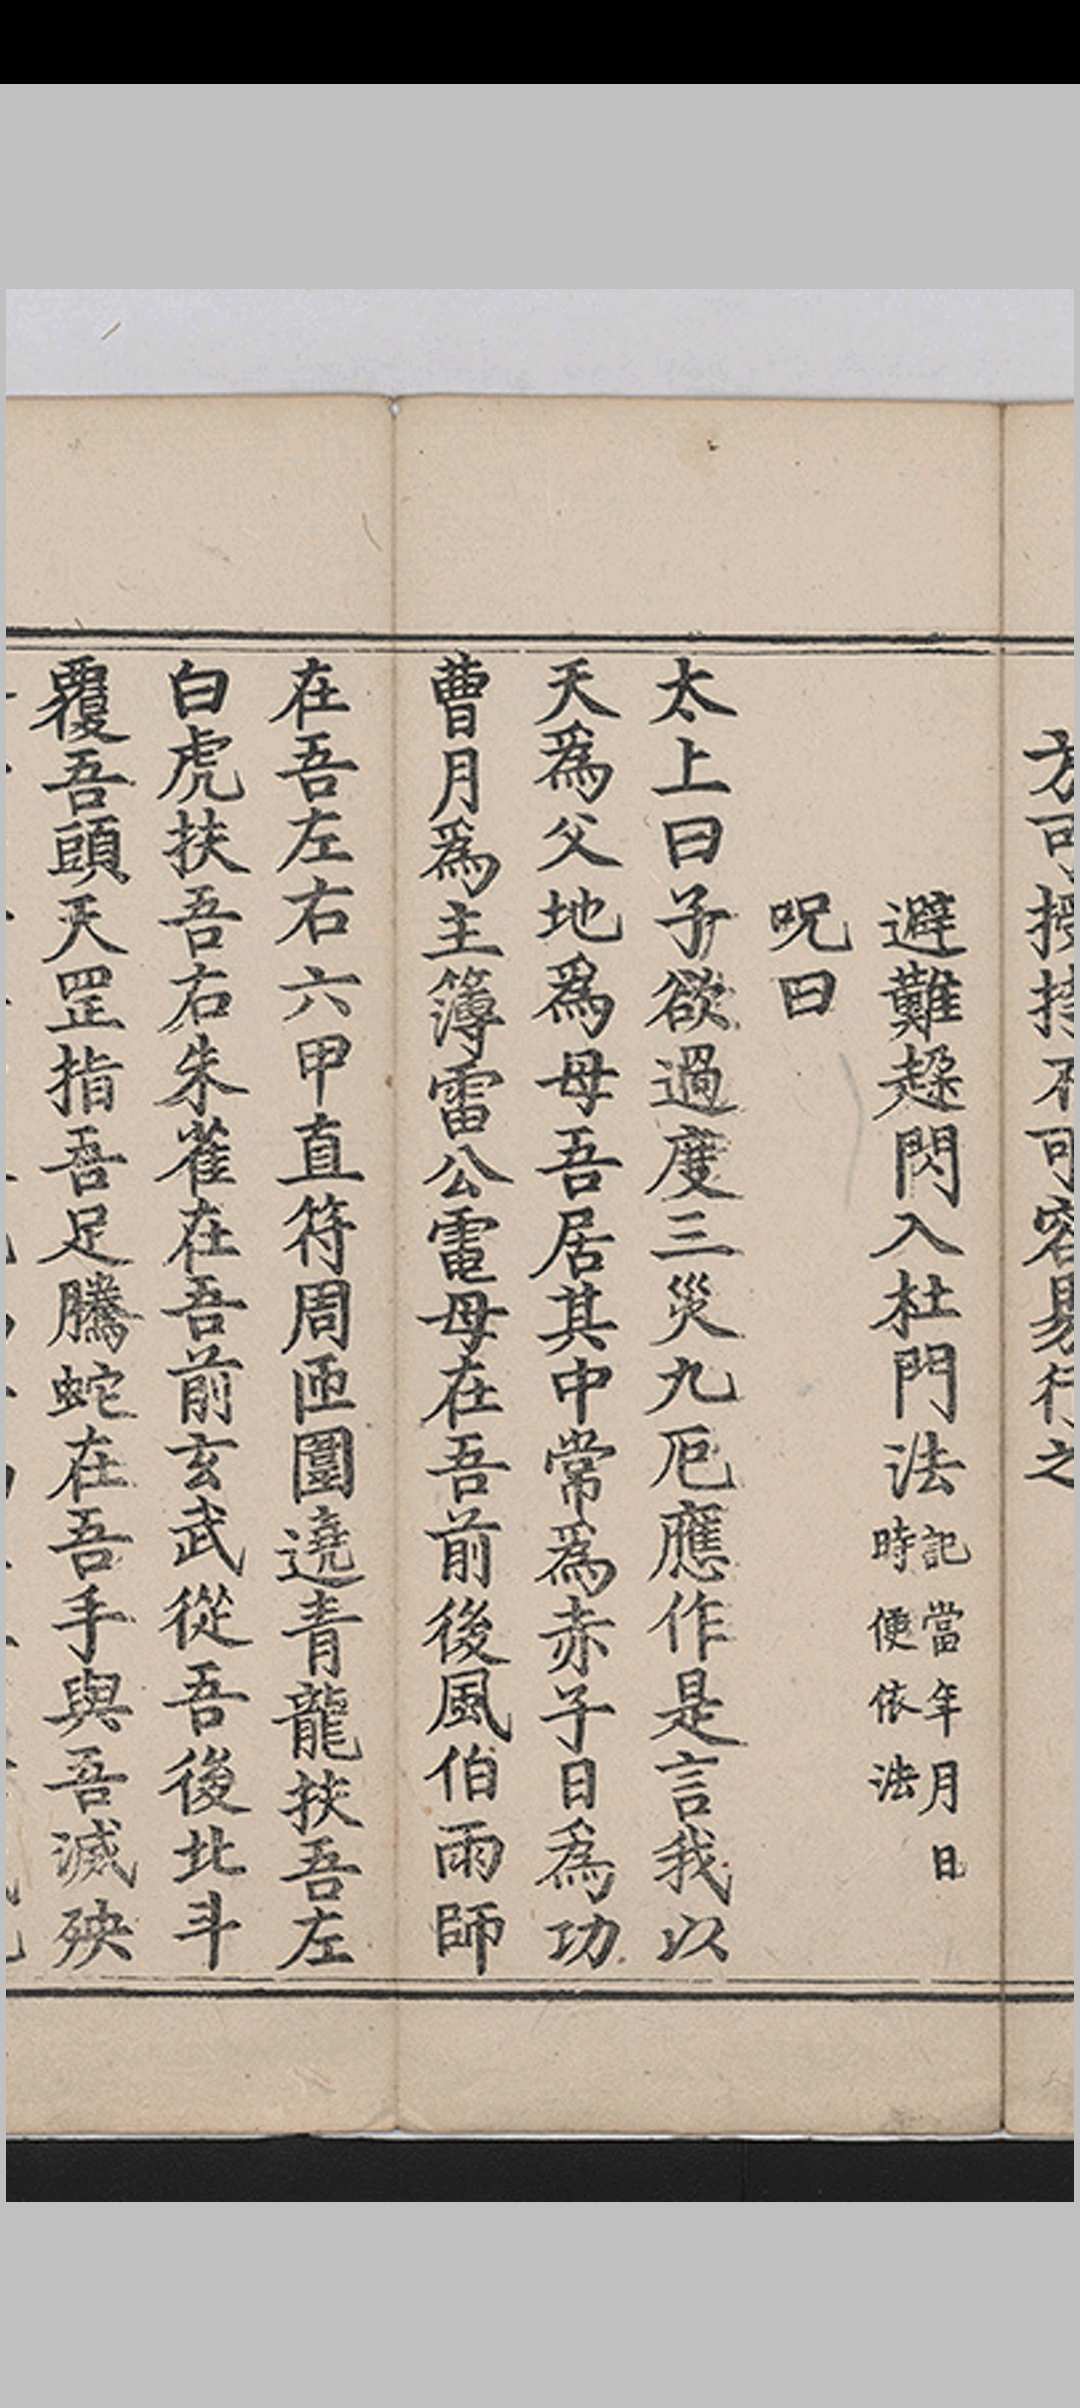 方可授持不可容易行之
避難趍閃入杜門法記當年月日時便依法
呪曰
太上曰子欲過度三災九厄應作是言我以
天爲父地爲母吾居其中常爲赤子日爲功
曹月爲主簿雷公電母在吾前後風伯雨師
在吾左右六甲直符周匝圍遶青龍扶吾左
白虎扶吾右朱雀在吾前玄武從吾後北斗
覆吾頭天罡指吾足騰蛇在吾手與吾滅殃